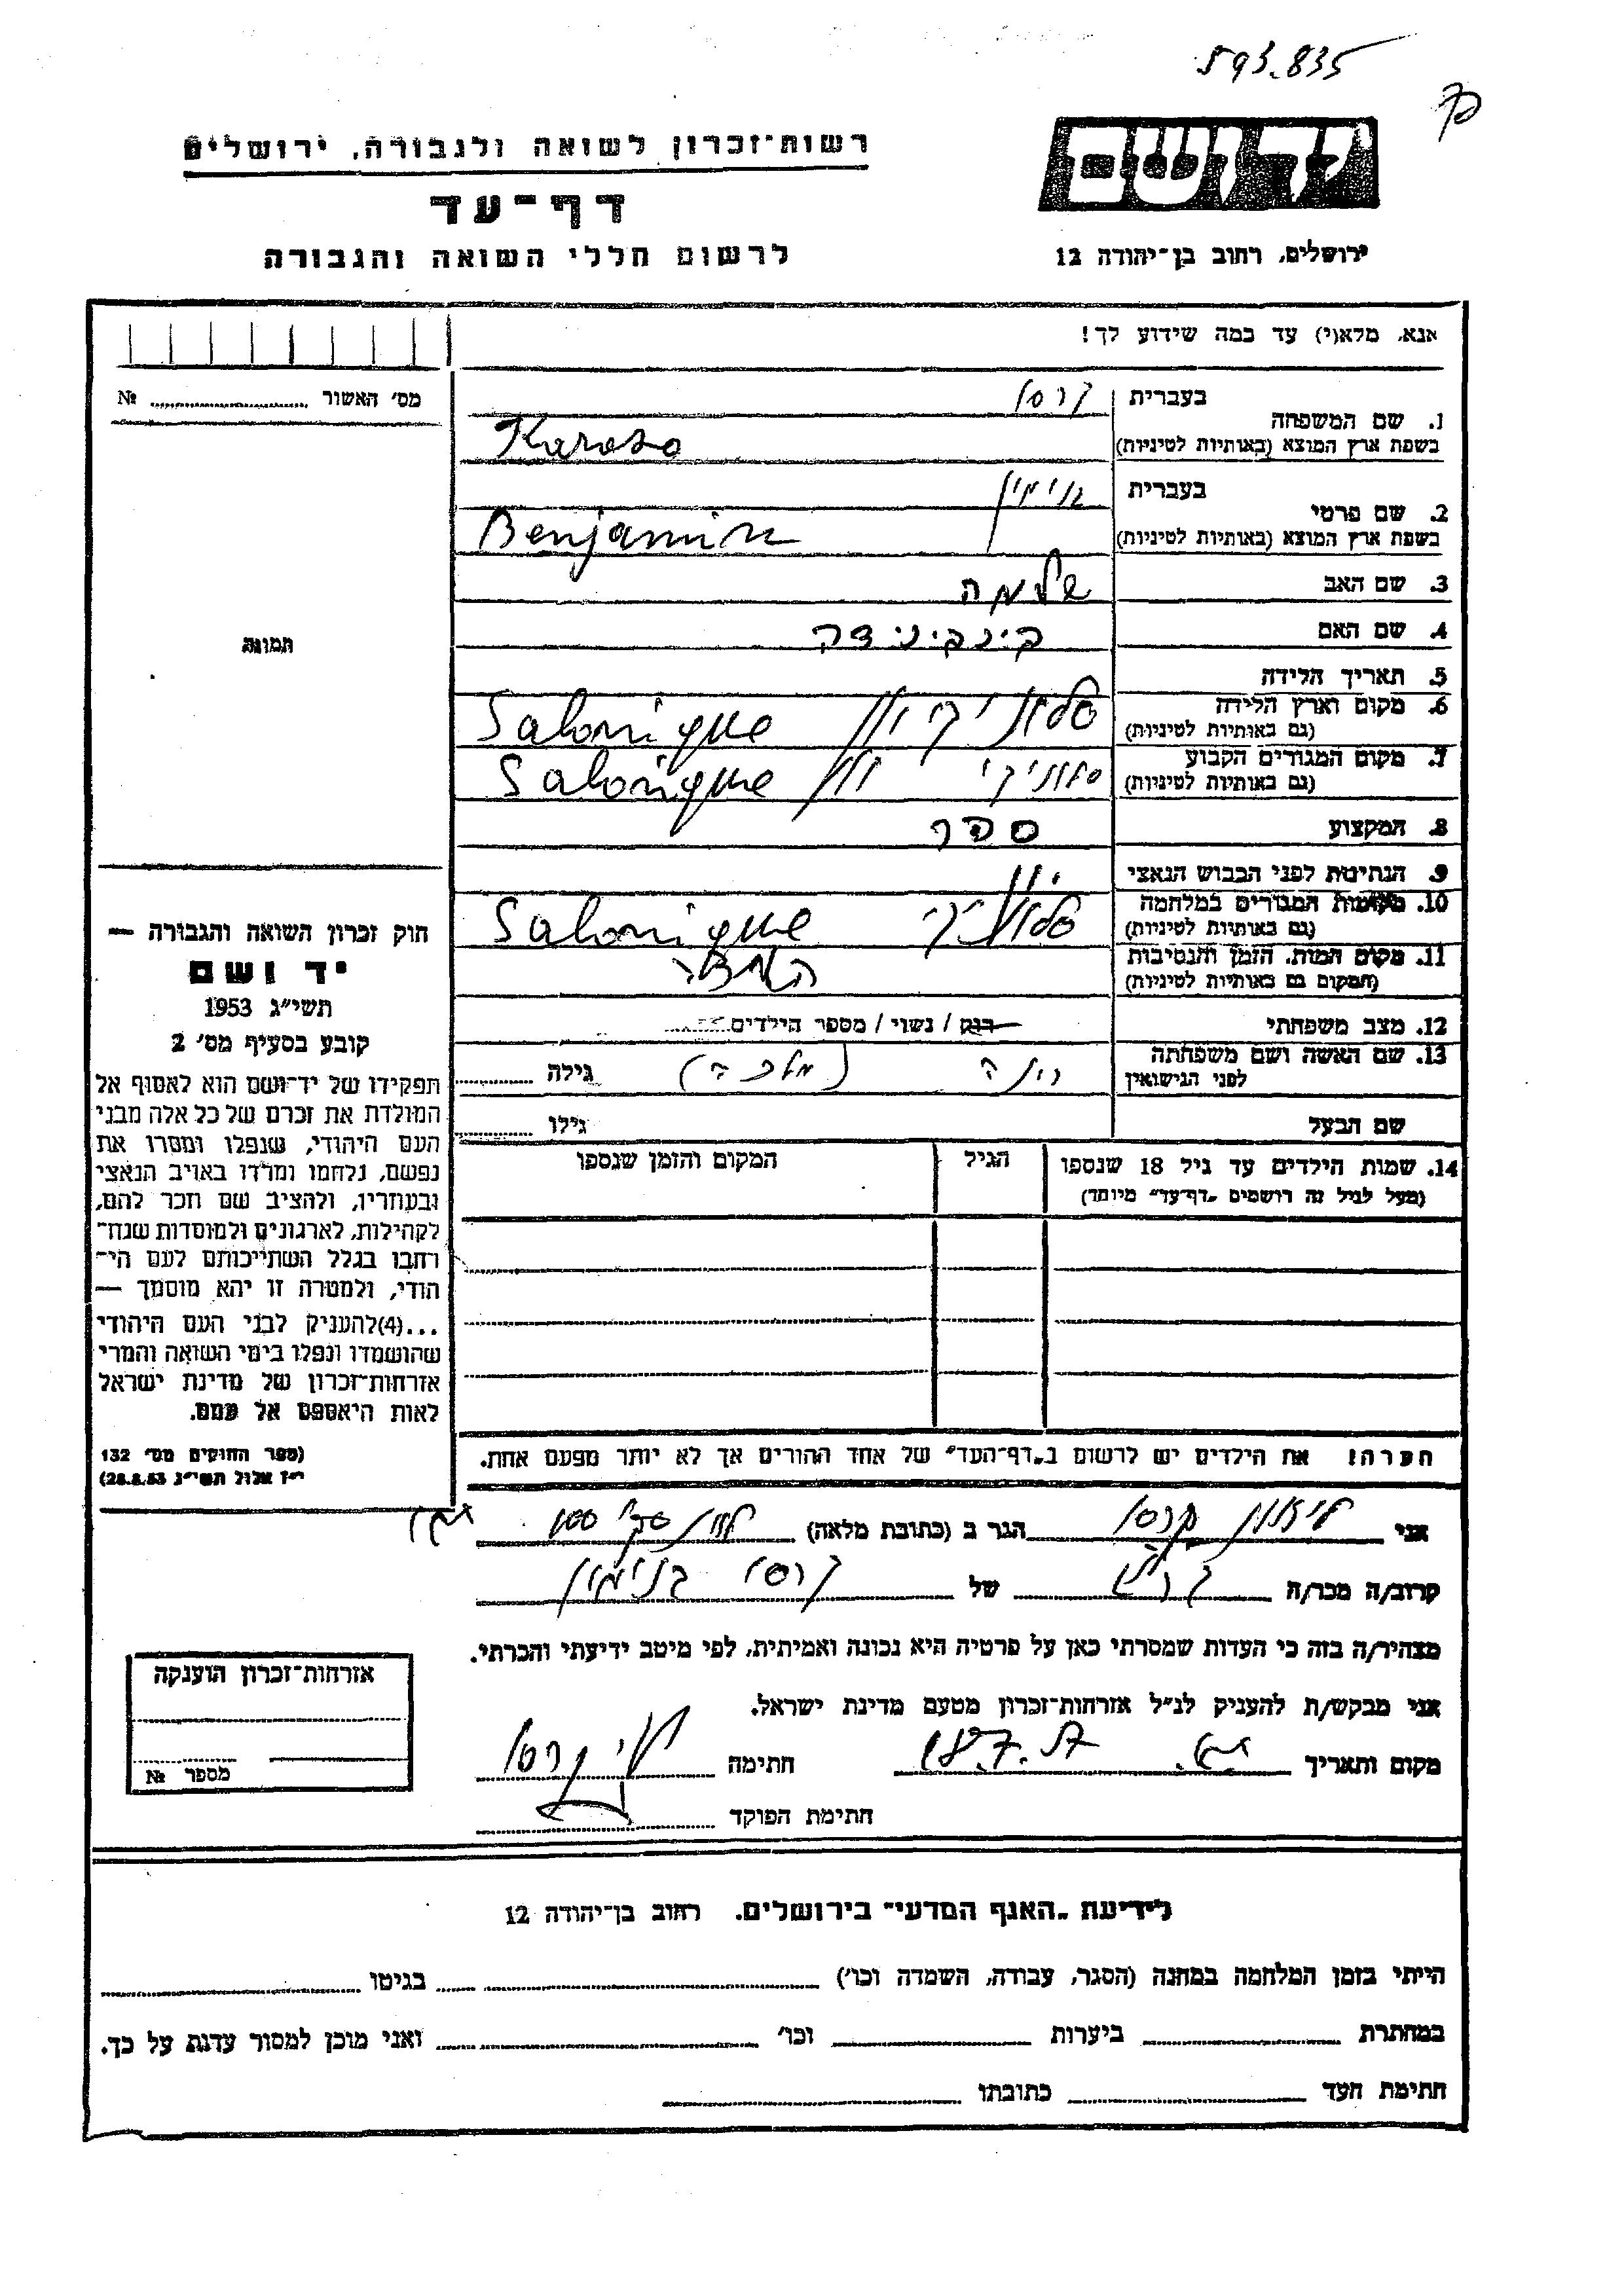 593.835
יד ושם
רשות־זכרון לשואה ולגבורה, ירושלים
דף־עד
לרשום חללי השואה והגבורה
ירושלים, רחוב בן־יהודה 12
אנא, מלא(י) עד כמה שידוע לך!
מס׳ האשור № 
1. שם המשפחה
בעברית קרסו
בשפת ארץ המוצא (באותיות לטיניות) Karaso
2. שם פרטי
בעברית בנימין
בשפת ארץ המוצא (באותיות לטיניות) Benjamin
3. שם האב שלמה
4. שם האם בינבינידה
5. תאריך הלידה
6. מקום וארץ הלידה (גם באותיות לטיניות) סלוניקי יוון Salonique
7. מקום המגורים הקבוע (גם באותיות לטיניות) סלוניקי יוון Salonique
8. המקצוע ספר
9. הנתינות לפני הכבוש הנאצי יוון
10. מקומות המגורים במלחמה (גם באותיות לטיניות) סלוניקי Salonique
11. מקום המות, הזמן והנסיבות (המקום גם באותיות לטיניות) השמדה
12. מצב משפחתי רווק / נשוי / מספר הילדים
13. שם האשה ושם משפחתה לפני הנישואין (מלכה) גילה
שם הבעל גילו
14. שמות הילדים עד גיל 18 שנספו
(מעל לגיל זה רושמים "דף־עד" מיוחד)
הגיל
המקום והזמן שנספו
תמונה
חוק זכרון השואה והגבורה —
יד ושם
תשי״ג 1953
קובע בסעיף מס׳ 2
תפקידו של יד־ושם הוא לאסוף אל
המולדת את זכרם של כל אלה מבני
העם היהודי, שנפלו ומסרו את
נפשם, נלחמו ומרדו באויב הנאצי
ובעוזריו, ולהציב שם וזכר להם,
לקהילות, לארגונים ולמוסדות שנח־
רבו בגלל השתייכותם לעם הי־
הודי, ולמטרה זו יהא מוסמך —
...(4)להעניק לבני העם היהודי
שהושמדו ונפלו בימי השואה והמרי
אזרחות־זכרון של מדינת ישראל
לאות היאספם אל עמם.
(ספר החוקים מס׳ 132
י״ז אלול תשי״ג 28.8.53)
הערה! את הילדים יש לרשום ב„דף־העד״ של אחד ההורים אך לא יותר מפעם אחת.
אני ליאון קרסו הגר ב (כתובת מלאה)
קרוב/ה מכר/ה קרוב של קרסו בנימין
מצהיר/ה בזה כי העדות שמסרתי כאן על פרטיה היא נכונה ואמיתית, לפי מיטב ידיעתי והכרתי.
אני מבקש/ת להעניק לנ״ל אזרחות־זכרון מטעם מדינת ישראל.
מקום ותאריך חתימה
חתימת הפוקד
אזרחות־זכרון הוענקה
מספר №
לידיעת „האגף המדעי״ בירושלים, רחוב בן־יהודה 12
הייתי בזמן המלחמה במחנה (הסגר, עבודה, השמדה וכו׳) בגיטו
במחתרת ביערות וכו׳ ואני מוכן למסור עדות על כך.
חתימת העד כתובתו